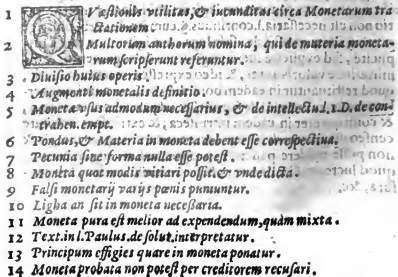 1 Quæstionis vtilitas, & iucunditas circa Monetarum tra
ctationem
2 Multorum authorum nomina, qui de materia moneta-
rum scripserunt referuntur.
3 Diuisio huius operis.
4 Augmenti monetalis definitio.
5 Monetæ vsus admodum necessarius, & de intellectu l. 1. D. de con-
trahen. empt.
6 Pondus, & Materia in moneta debent esse correspectiua.
7 Pecunia sine forma nulla esse potest.
8 Moneta quot modis vitiari possit, & vnde dicta.
9 Falsi monetarÿ varÿs pœnis puniuntur.
10 Ligha an sit in moneta necessaria.
11 Moneta pura est melior ad expendendum, quàm mixta.
12 Text. in l. Paulus. de solut. interpretatur.
13 Principum effigies quare in moneta ponatur.
14 Moneta probata non potest per creditorem recusari.